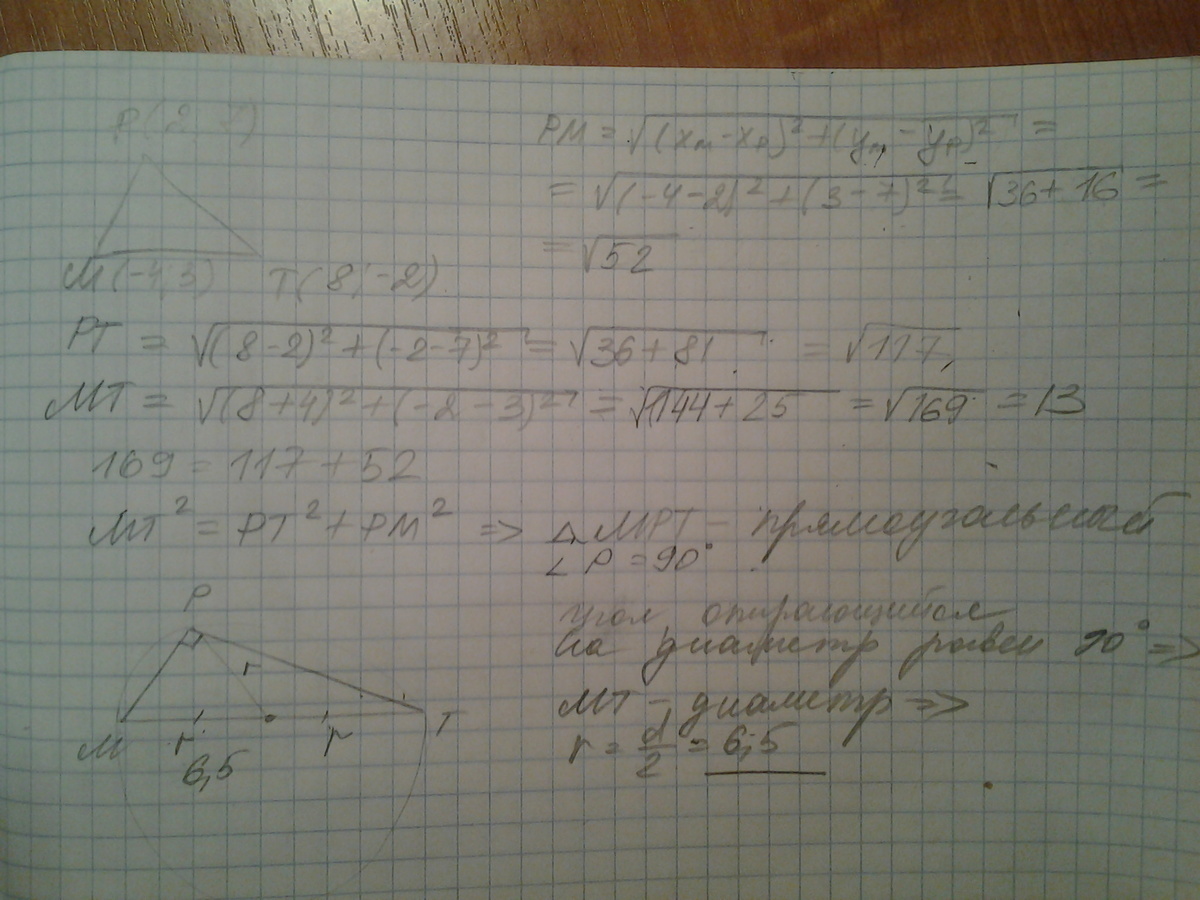 P(2;7)
M(-4;3) T(8;-2)
PM = √((xₘ-xₚ)²+(yₘ-yₚ)²) =
= √((-4-2)²+(3-7)²) = √(36+16) =
= √52
PT = √((8-2)²+(-2-7)²) = √(36+81) = √117,
MT = √((8+4)²+(-2-3)²) = √(144+25) = √169 = 13
169 = 117+52
MT² = PT²+PM² => △ MPT - прямоугольный
∠ P = 90°
угол, опирающийся
на диаметр равен 90° =>
MT - диаметр =>
r = d/2 = 6,5
P
r
M T
r r
6,5